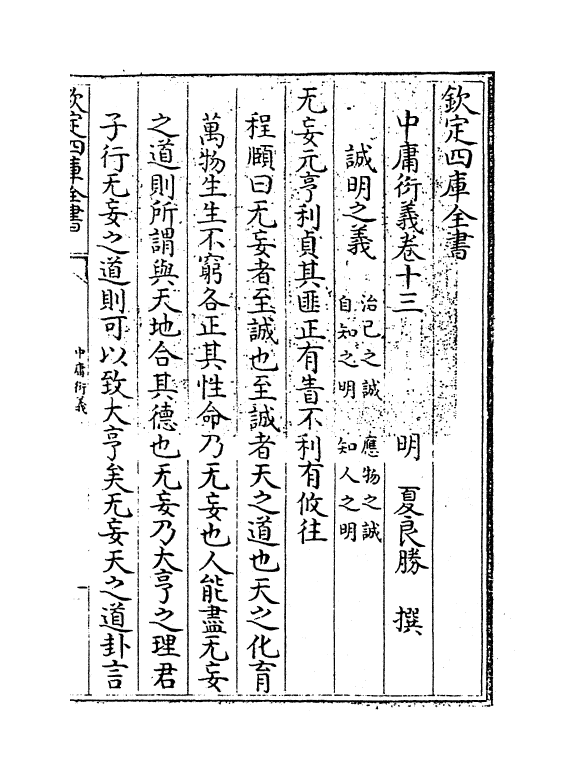 欽定四庫全書
中庸衍義卷十三
明 夏良勝 撰
誠明之義
治己之誠 應物之誠
自知之明 知人之明
无妄元亨利貞其匪正有眚不利有攸往
程頤曰无妄者至誠也至誠者天之道也天之化育
萬物生生不窮各正其性命乃无妄也人能盡无妄
之道則所謂與天地合其德也无妄乃大亨之理君
子行无妄之道則可以致大亨矣无妄天之道卦言
欽定四庫全書
中庸衍義